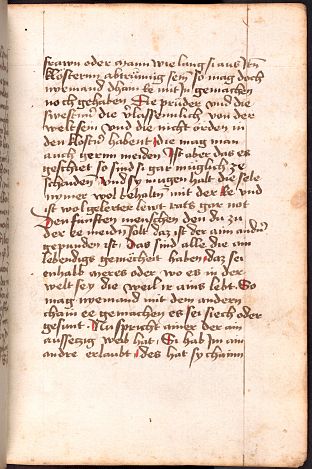 frawn oder mann wie lang si aus irn
klostern abtrünnig sein so mag doch
niemand dhain ke mit in gemachen
noch gehaben Die prüder vnd die
swestern die vlassennlich von der
welt sein vnd die nicht orden in
den klostern habent die mag man
auch herin meiden Ist aber das es
geschiet so sind si gar müglich ze
schaiden vnd sy mügen halt die sele
nimer wol behalten mit der ke vnd
ist wol gelerter lewt rats gar not
Den funften menschen den du zu
der ke meiden solt daz ist der aim andern
gepunden ist das sind alle die ain
lebendigs gemechelt haben daz sei
enhalb meers oder wo es in der
welt sey die weil ir ains lebt So
mag niemand mit dem andern
chain ee gemachen es sei siech oder
gesunt Nu spricht ainer der ain
aussetzig weib hat Ei hab im ain
andre erlaubt des hat sy chainn